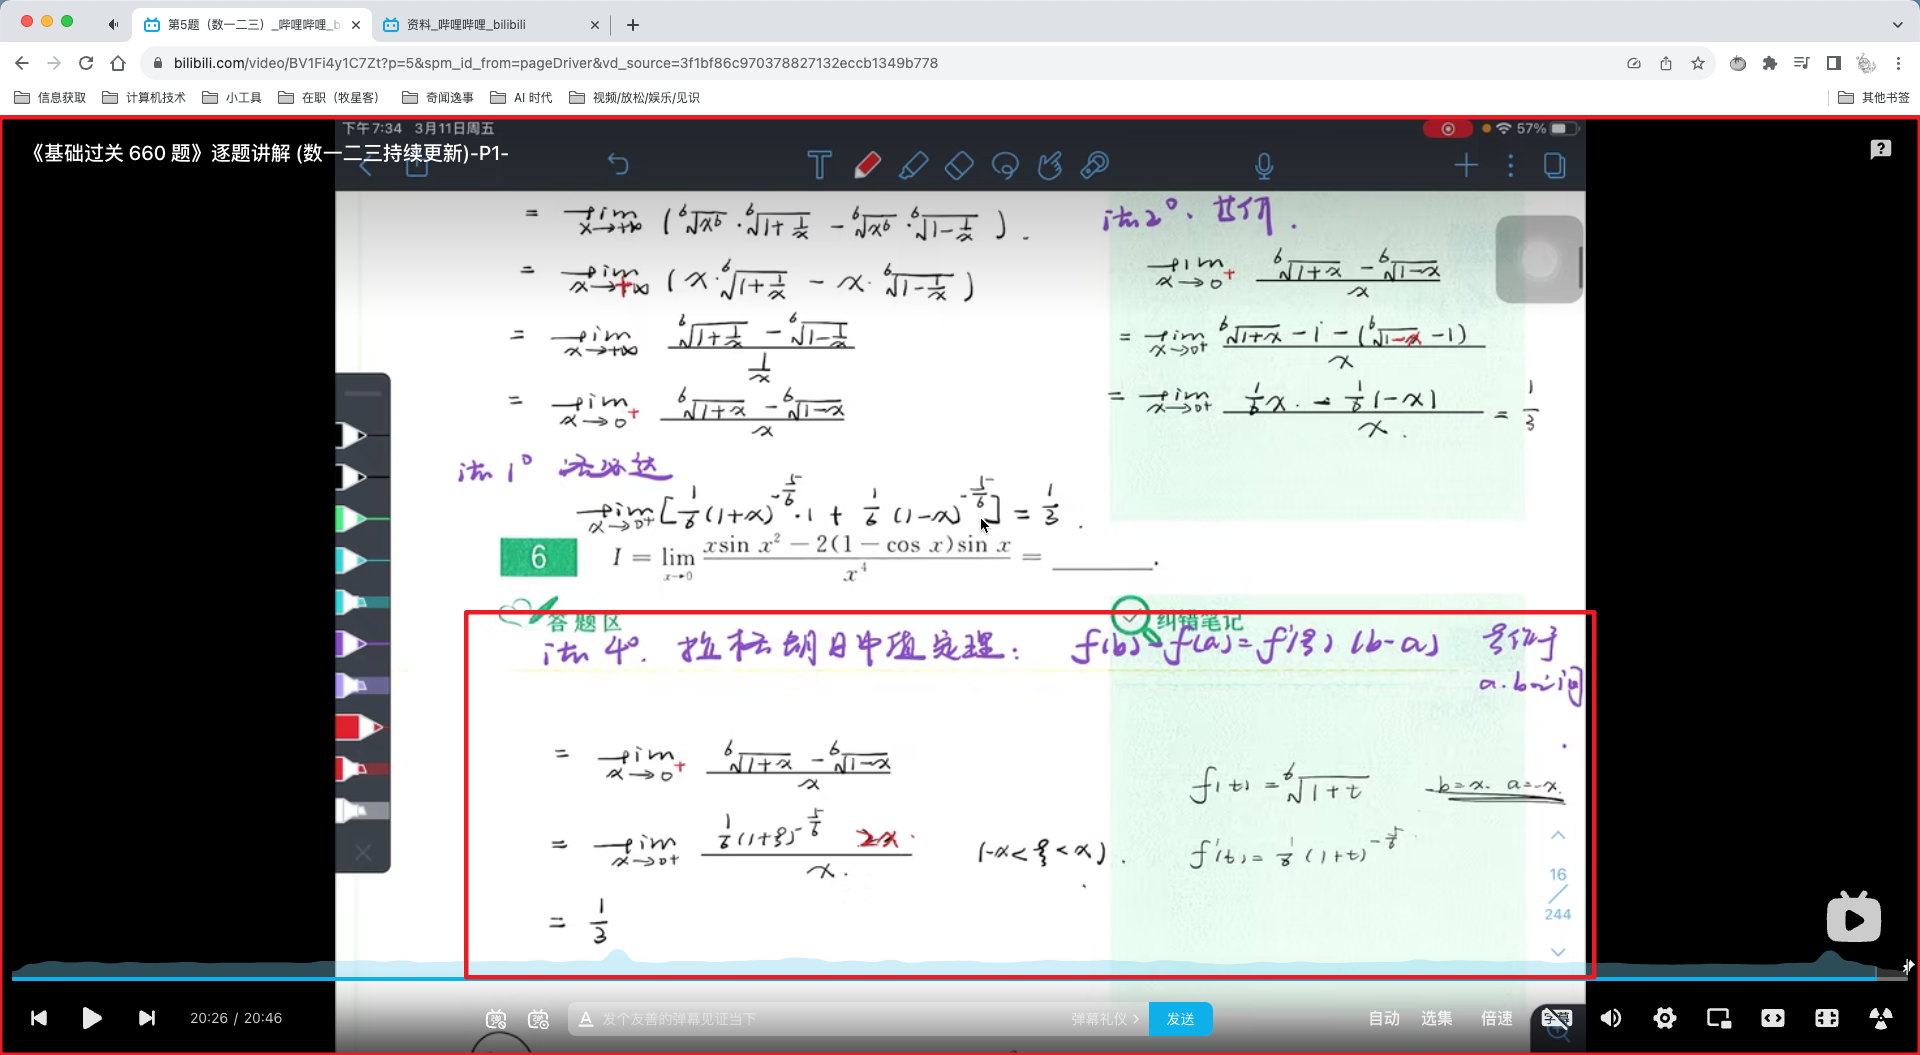 第5题（数一二三）_哔哩哔哩_b
资料_哔哩哔哩_bilibili
bilibili.com/video/BV1Fi4y1C7Zt?p=5&spm_id_from=pageDriver&vd_source=3f1bf86c970378827132eccb1349b778
信息获取 计算机技术 小工具 在职（牧星客） 奇闻逸事 AI 时代 视频/放松/娱乐/见识 其他书签
下午7:34 3月11日周五 57%
《基础过关 660 题》逐题讲解 (数一二三持续更新)-P1-
= lim x→+∞ (⁶√x⁶ · ⁶√1+1/x − ⁶√x⁶ · ⁶√1−1/x).
= lim x→+∞ (x · ⁶√1+1/x − x · ⁶√1−1/x)
= lim x→+∞ (⁶√1+1/x − ⁶√1−1/x) / (1/x)
= lim x→0+ (⁶√1+x − ⁶√1−x) / x
法1° 洛必达
lim x→0+ [1/6 (1+x)^(-5/6) · 1 + 1/6 (1−x)^(-5/6)] = 1/3.
法2°. 等价.
lim x→0+ (⁶√1+x − ⁶√1−x) / x
= lim x→0+ (⁶√1+x − 1 − (⁶√1−x − 1)) / x
= lim x→0+ (1/6 x − 1/6 (−x)) / x = 1/3
6 I = lim x→0 (x sin x² − 2(1 − cos x) sin x) / x⁴ = ______.
答题区
纠错笔记
法4°. 拉格朗日中值定理: f(b)−f(a)=f′(ξ)(b−a) ξ位于
a.b之间
= lim x→0+ (⁶√1+x − ⁶√1−x) / x
= lim x→0+ (1/6 (1+ξ)^(-5/6) 2x) / x. (−x<ξ<x).
= 1/3
f(t) = ⁶√1+t b=x. a=−x.
f′(t) = 1/6 (1+t)^(-5/6)
16
244
20:26 / 20:46
发个友善的弹幕见证当下
弹幕礼仪 >
发送
自动 选集 倍速 字幕